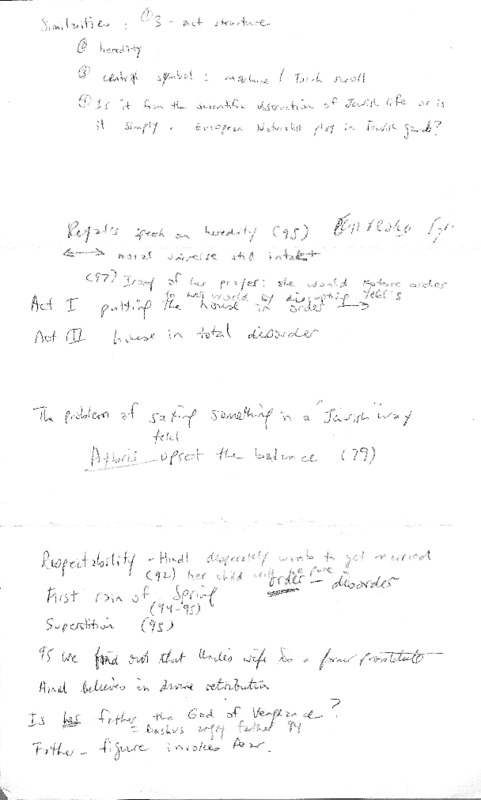 Similarities: ① 3-act structure
② heredity
③ central symbol: machine / Torah scroll
④ Is it from the scientific observation of Jewish life or is
it simply a European Naturalist play in Jewish garb?
speech on heredity (95)
⟷ moral universe still intact
(97) Irony of her prayer: she would restore order
to her world by disrupting Yekl's
Act I putting the house in order
Act III house in total disorder
The problem of saying something in a "Jewish" way
Yekl
upset the balance (79)
Respectability - Hindl desperately wants to get married
(92) her child will be pure
order - disorder
First rain of Spring
(94-95)
Superstition (95)
95 we find out that Uncle's wife is a former prostitute
Hindl believes in divine retribution
Is father the God of Vengeance?
= Basha's angry father 94
Father-figure invokes fear.